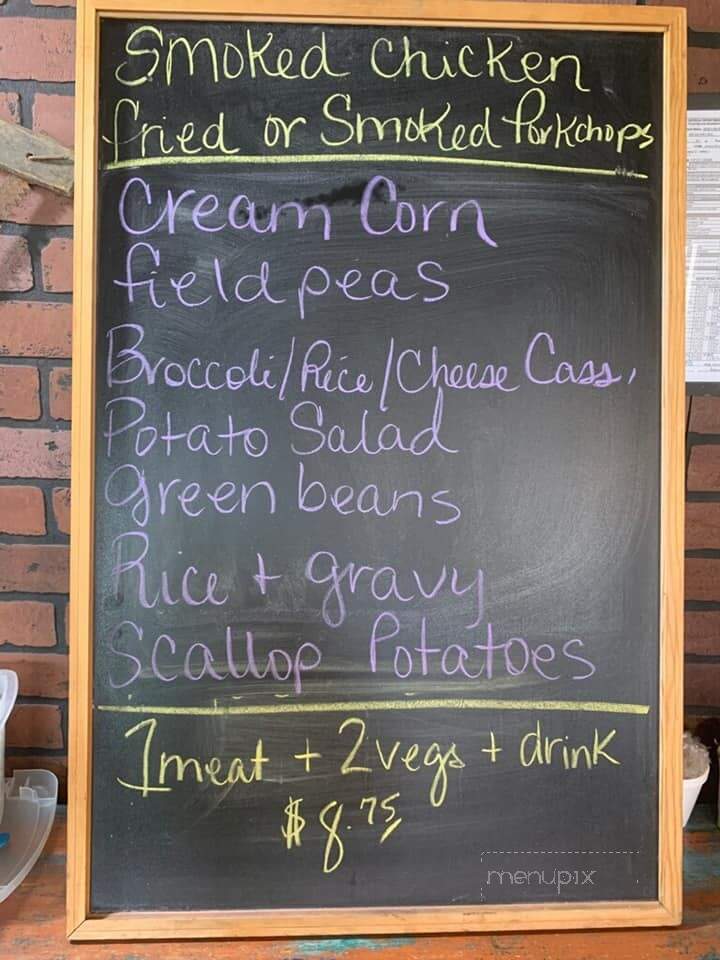 Smoked Chicken
fried or Smoked Porkchops
Cream Corn
field peas
Broccoli/Rice/Cheese Cass.
Potato Salad
green beans
Rice + gravy
Scallop Potatoes
1 meat + 2 vegs + drink
$8.75
menupix